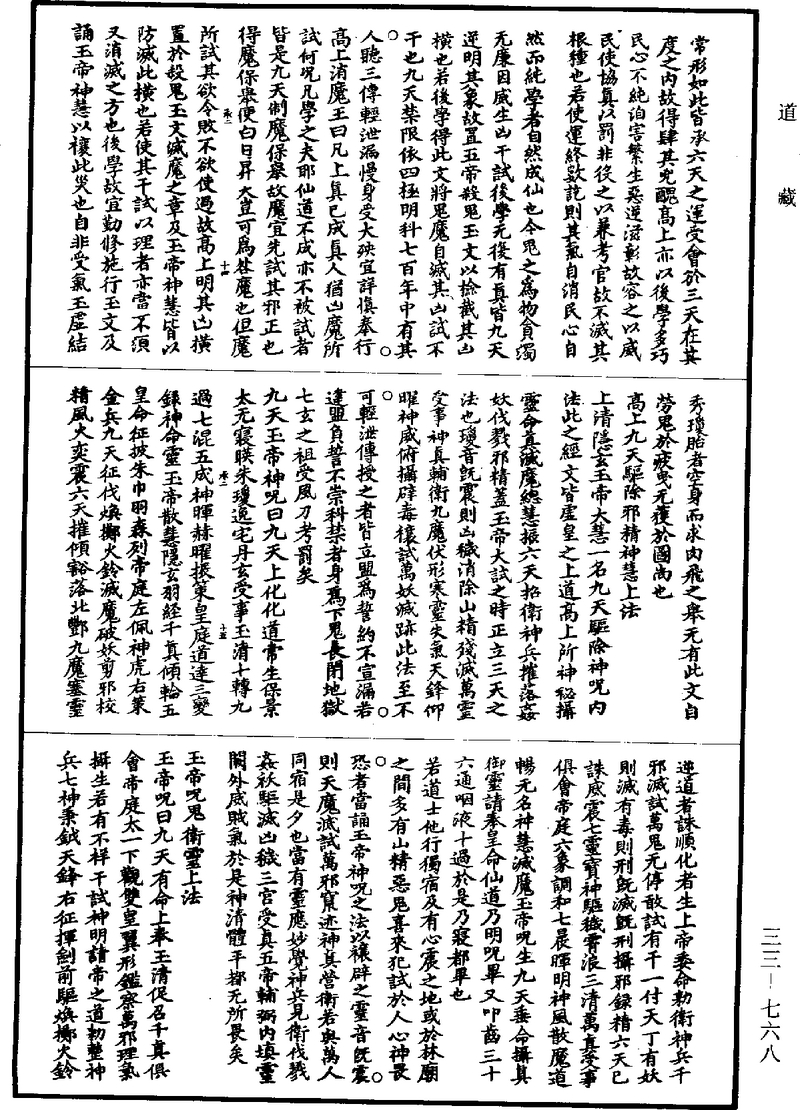 道藏
常形如此皆承六天之運受會於三天在其
度之內故得肆其兇醜高上亦以後學多巧
民心不純泊害繁生惡逆滋彰故容之以威
民使協真以罰非役之以兼考官故不滅其
根種也若使運終數訖則其氣自消民心自
然而純學者自然成仙也今鬼之為物貪濁
无廉因威生凶干試後學无後有真皆九天
逆明其象故置五帝殺鬼玉文以檢截其凶
橫也若後學得此文將鬼魔自滅其凶試不
干也九天禁限依四極明科七百年中有其
人聽三傳輕泄漏慢身受大殃宜詳慎奉行
高上消魔王曰凡上真已成真人猶凶魔所
試何況凡學之夫耶仙道不成亦不被試者
皆是九天制魔保舉故魔宜先試其邪正也
得魔保舉便白日昇天豈可為咎魔也但魔
所試其欲令敗不欲使過故高上明其凶橫
置於殺鬼玉文滅魔之章及玉帝神慧皆以
防滅此橫也若使其干試以理者亦當不須
又消滅之方也後學故宜勤修施行玉文及
誦玉帝神慧以禳此災也自非受氣玉虛結
秀瓊胎者空身而求肉飛之舉无有此文自
勞鬼於疲曳无獲於圖尚也
高上九天驅除邪精神慧上法
上清隱玄玉帝大慧一名九天驅除神呪內
法此之經文皆虛皇之上道高上所神祕攝
靈命真滅魔總慧振六天招衛神兵摧落姦
妖伐戮邪精蓋玉帝大試之時正立三天之
法也瓊音既震則凶穢消除山精殘滅萬靈
受事神真輔衛九魔伏形寒靈失氣天鋒仰
曜神威俯攝辟毒禳試萬妖滅跡此法至不
可輕泄傳授之者皆立盟為誓約不宣漏若
違盟負誓不崇科禁者身為下鬼長閉地獄
七玄之祖受風刀考罰矣
九天玉帝神呪曰九天上化化道常生保景
太无寢暎朱瓊逸宅丹玄受事玉清十轉九
過七混五成神暉赫曜振策皇庭道達三變
錄神命靈玉帝散慧隱玄羽經千真傾輪五
皇命征披朱巾羽森列帝庭左佩神虎右策
金兵九天征伐煥擲火鈴滅魔破妖剪邪校
精風火奕震六天摧傾豁落北酆九魔塞靈
逆道者誅順化者生上帝委命勑衛神兵千
邪滅試萬鬼无停敢試有干一付天丁有妖
則滅有毒則刑既滅既刑攝邪錄精六天已
誅威震七靈寶神驅穢霄浪三清萬真受事
俱會帝庭六象調和七晨暉明神風散魔道
暢无名神慧滅魔玉帝呪生九天垂命攝真
御靈請奉皇命仙道乃明呪畢又叩齒三十
六通咽液十過於是乃寢都畢也
若道士他行獨宿及有心震之地或於林廟
之間多有山精惡鬼喜來犯試於人心神畏
恐者當誦玉帝神呪之法以禳辟之靈音既震
則天魔滅試萬邪竄迹神真營衛若與萬人
同宿是夕也當有靈應妙覺神兵見衛伐戮
姦祅驅滅凶穢三宮受真五帝輔弼內填靈
關外威賊氣於是神清體平都无所畏矣
玉帝呪鬼衛靈上法
玉帝呪曰九天有命上奉玉清促召千真俱
會帝庭太一下觀雙皇翼形鑑察萬邪理氣
攝生若有不祥干試神明請帝之道勑整神
兵七神秉鉞天鋒右征揮劍前驅煥擲火鈴
三三—七六八